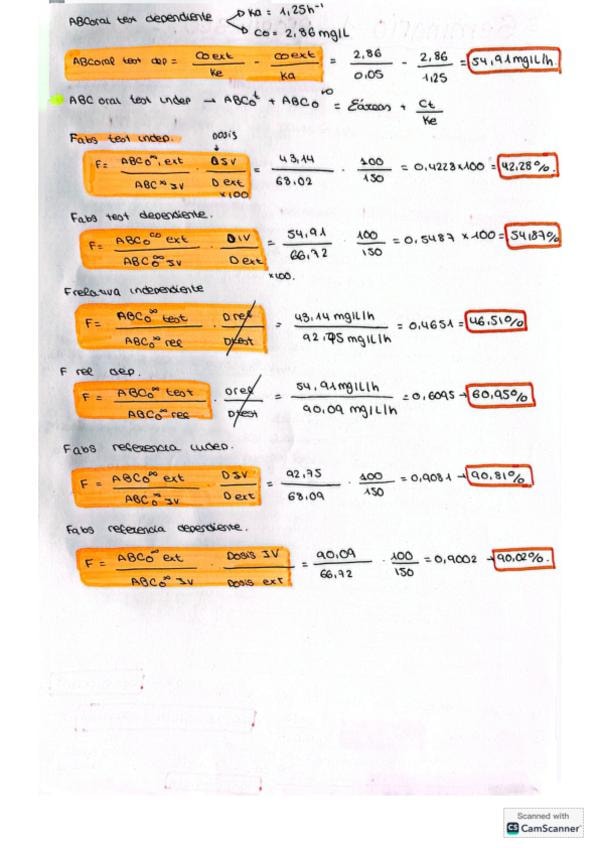 ABCoral test dependiente → Ka = 1,25h⁻¹
→ Co = 2,86 mg/L
ABCoral test dep = Co ext / Ke - Co ext / Ka = 2,86 / 0,05 - 2,86 / 1,25 = 54,91 mg/L/h.
ABC oral test indep → ABC₀ᵗ + ABC₀^∞ = Σáreas + Ct / Ke
Fabs test indep. Dosis
F = ABC₀^∞ ext / ABC^∞ IV · D IV / D ext x100 = 43,14 / 68,02 · 100 / 150 = 0,4228x100 = 42,28%.
Fabs test dependiente.
F = ABC₀^∞ ext / ABC₀^∞ IV · D IV / D ext x100. = 54,91 / 66,72 · 100 / 150 = 0,5487 x 100 = 54,87%
Frelativa independiente
F = ABC₀^∞ test / ABC₀^∞ ref · D ref / D test = 43,14 mg/L/h / 92,75 mg/L/h = 0,4651 = 46,51%
F rel dep.
F = ABC₀^∞ test / ABC₀^∞ ref · D ref / D test = 54,91 mg/L/h / 90,09 mg/L/h = 0,6095 → 60,95%
Fabs referencia indep.
F = ABC₀^∞ ext / ABC₀^∞ IV · D IV / D ext = 92,75 / 68,09 · 100 / 150 = 0,9081 → 90,81%
Fabs referencia dependiente.
F = ABC₀^∞ ext / ABC₀^∞ IV · Dosis IV / Dosis ext = 90,09 / 66,72 · 100 / 150 = 0,9002 → 90,02%.
Scanned with
CS CamScanner